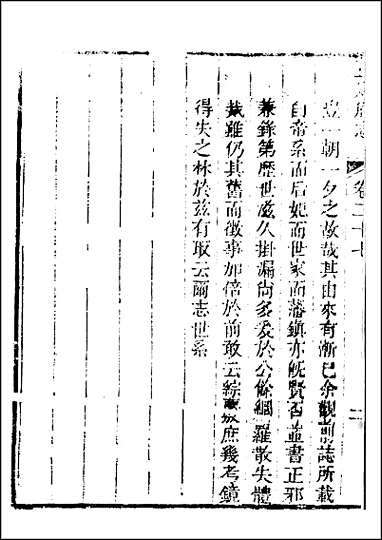 卷二十七
二
豈一朝一夕之故哉其由來有漸已余觀前誌所載
自帝系而后妃而世家而藩鎮亦旣賢否並書正邪
兼錄第歷世滋久掛漏尚多爰於公餘網羅散失體
裁雖仍其舊而徵事加倍於前敢云綜 庶幾考鏡
得失之林於茲有取云爾志世系